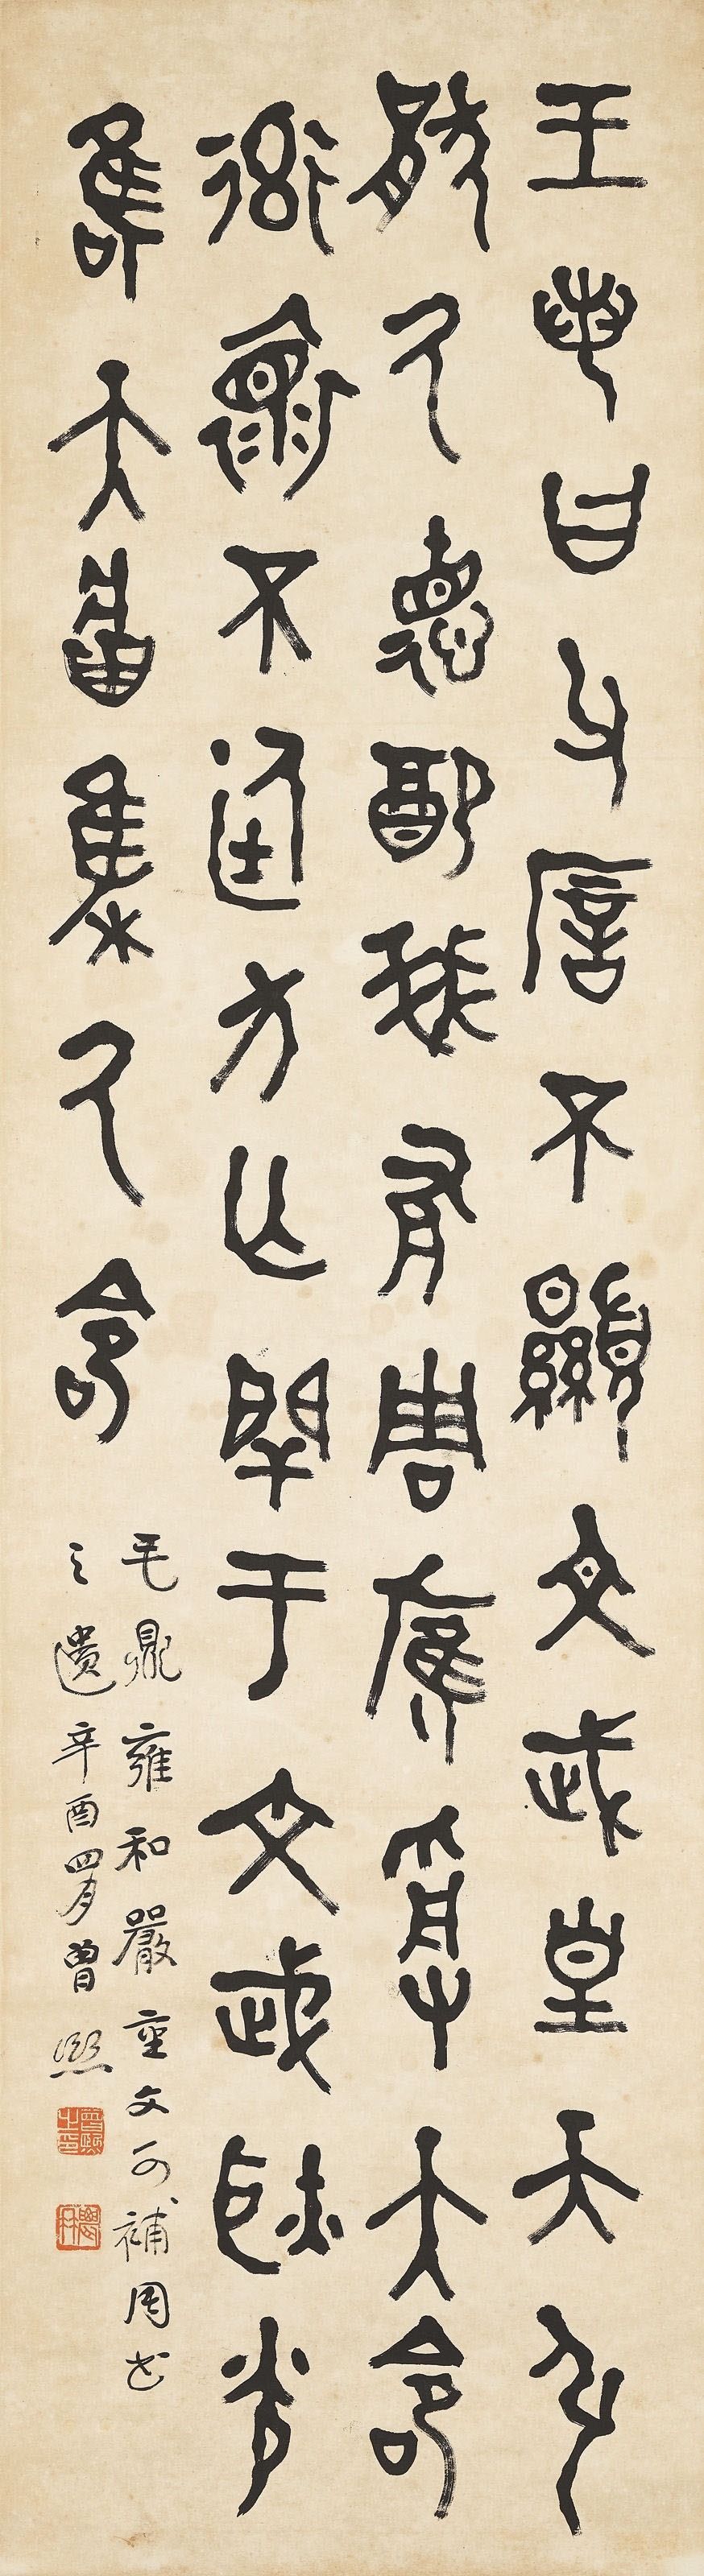 王若曰父𢉩不顯文武皇天引
猒氒德配我有周雁受大命
率褱不廷方亡閈于文武耿光
唯天𤖕集氒命
毛鼎雍和嚴重文可補周書
之遺辛酉四月曾熙
曾熙之印
農髯